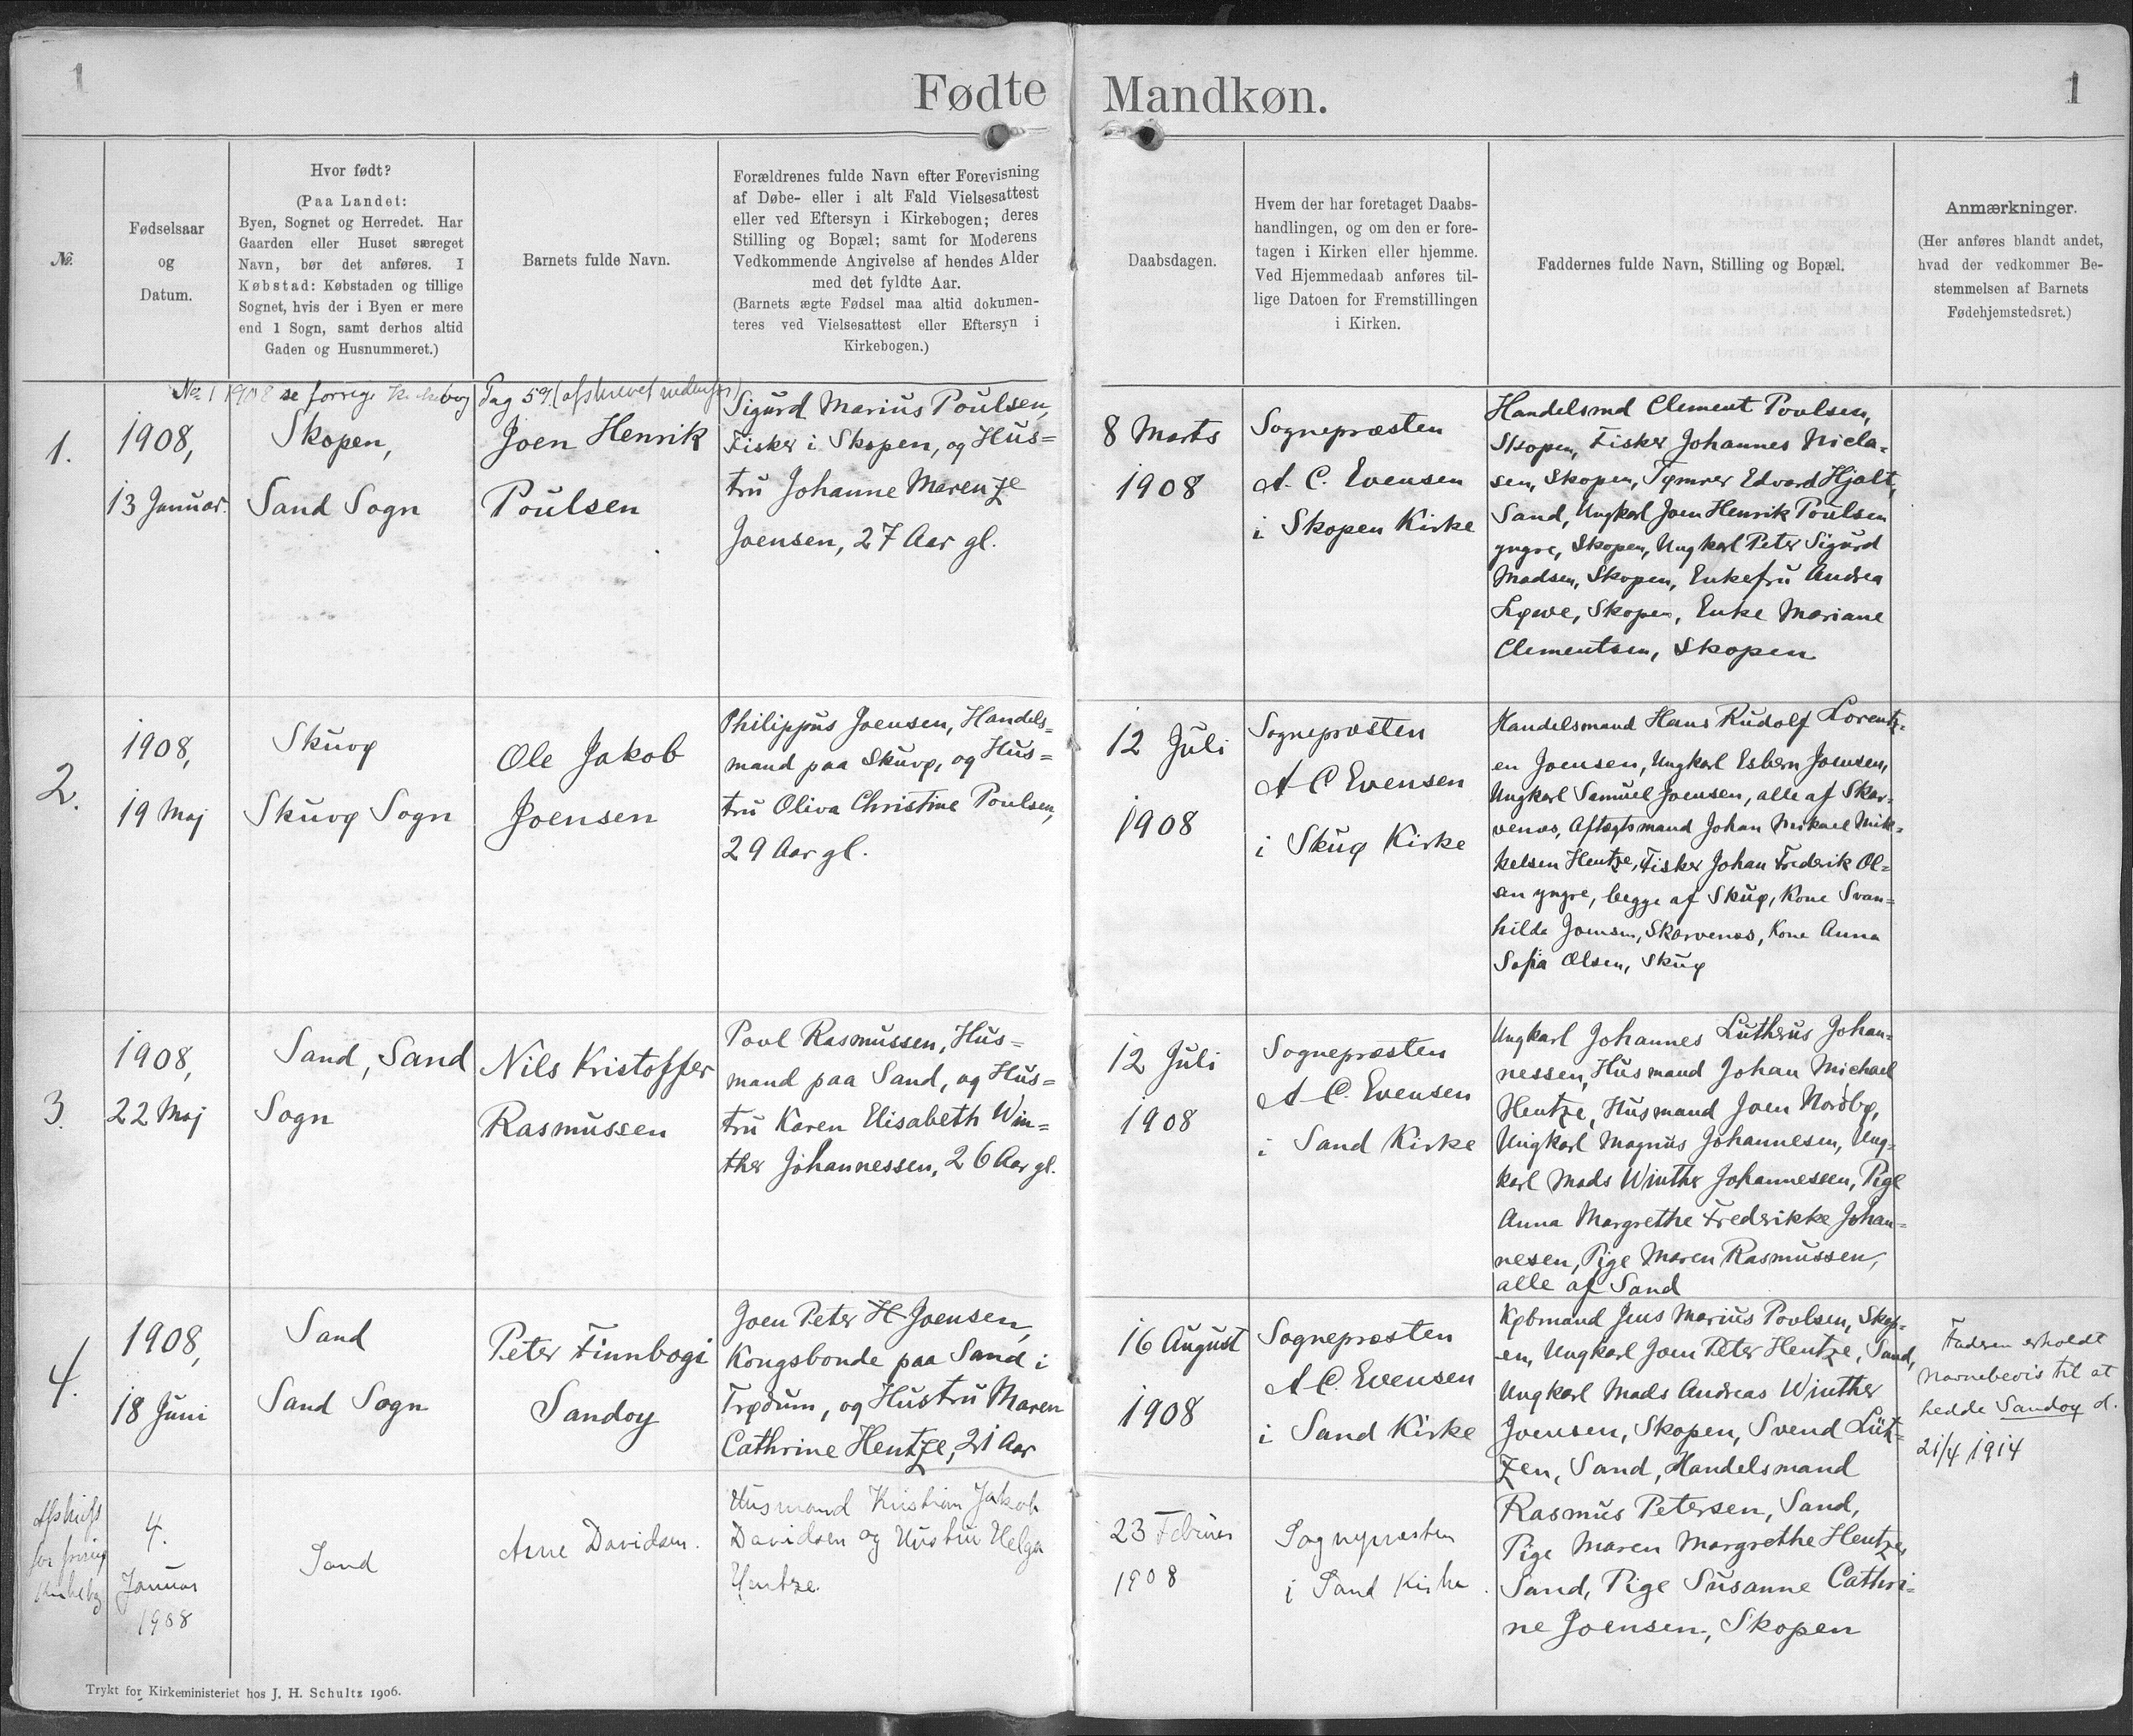 1
Fødte
Mandkøn.
1
№.
Fødselsaar
og
Datum.
Hvor født?
(Paa Landet:
Byen, Sognet og Herredet. Har
Gaarden eller Huset særeget
Navn, bør det anføres. I
Købstad: Købstaden og tillige
Sognet, hvis der i Byen er mere
end 1 Sogn, samt derhos altid
Gaden og Husnummeret.)
Barnets fulde Navn.
Forældrenes fulde Navn efter Forevisning
af Døbe- eller i alt Fald Vielsesattest
eller ved Eftersyn i Kirkebogen; deres
Stilling og Bopæl; samt for Moderens
Vedkommende Angivelse af hendes Alder
med det fyldte Aar.
(Barnets ægte Fødsel maa altid dokumen-
teres ved Vielsesattest eller Eftersyn i
Kirkebogen.)
Daabsdagen.
Hvem der har foretaget Daabs-
handlingen, og om den er fore-
tagen i Kirken eller hjemme.
Ved Hjemmedaab anføres til-
lige Datoen for Fremstillingen
i Kirken.
Faddernes fulde Navn, Stilling og Bopæl.
Anmærkninger.
(Her anføres blandt andet,
hvad der vedkommer Be-
stemmelsen af Barnets
Fødehjemstedsret.)
No 1 1908 se forrige Kirkebog Pag 59. (afskrevet nedenfor)
1.
1908,
13 Januar.
Skopen,
Sand Sogn
Joen Henrik
Poulsen
Sigurd Marius Poulsen,
Fisker i Skopen, og Hus=
tru Johanne Marenze
Joensen, 27 Aar gl.
8 Marts
1908
Sognepræsten
A. C. Evensen
i Skopen Kirke
Handelsmd Clement Poulsen,
Skopen, Fisker Johannes Nicla-
sen, Skopen, Tømrer Edvard Hjalt,
Sand, Ungkarl Joen Henrik Poulsen
yngre, Skopen, Ungkarl Peter Sigurd
Madsen, Skopen, Enkefru Andrea
Løwe, Skopen, Enke Mariane
Clementsen, Skopen
2.
1908,
19 Maj
Skuvø
Skuvø Sogn
Ole Jakob
Joensen
Philippus Joensen, Handels-
mand paa Skuvø, og Hus=
tru Oliva Christine Poulsen,
29 Aar gl.
12 Juli
1908
Sognepræsten
A C Evensen
i Skuø Kirke
Handelsmand Hans Rudolf Lorentz-
en Joensen, Ungkarl Esbern Joensen,
Ungkarl Samuel Joensen, alle af Skar-
venæs, Aftægtsmand Johan Mikael Mik-
kelsen Hentze, Fisker Johan Frederik Ol=
sen yngre, begge af Skuø, Kone Svan=
hilda Joensen, Skarvenæs, Kone Anna
Sofia Olsen, Skuø
3.
1908,
22 Maj
Sand, Sand
Sogn
Nils Kristoffer
Rasmussen
Povl Rasmussen, Hus=
mand paa Sand, og Hus=
tru Karen Elisabeth Win=
ther Johannessen, 26 Aar gl.
12 Juli
1908
Sognepræsten
A C. Evensen
i Sand Kirke
Ungkarl Johannes Lutherus Johan-
nessen, Husmand Johan Michael
Hentze, Husmand Joen Norðbø,
Ungkarl Magnus Johannesen, Ung-
karl Mads Winther Johannessen, Pige
Anna Margrethe Fredrikke Johan=
nesen, Pige Maren Rasmussen,
alle af Sand
4.
1908,
18 Juni
Sand
Sand Sogn
Peter Finnbogi
Sandoy
Joen Peter H Joensen,
Kongsbonde paa Sand i
Trøðum, og Hustru Maren
Cathrine Hentze, 21 Aar
16 August
1908
Sognepræsten
A C. Evensen
i Sand Kirke
Købmand Jens Marius Poulsen, Skop-
en, Ungkarl Joen Peter Hentze, Sand,
Ungkarl Mads Andreas Winther
Joensen, Skopen, Svend Lütz-
zen, Sand, Handelsmand
Rasmus Petersen, Sand,
Pige Maren Margrethe Hentze,
Sand, Pige Susanne Cathri=
ne Joensen, Skopen
Faderen erholdt
Navnebevis til at
hedde Sandoy d.
21/4 1914
Afskrift
for forrige
Kirkebog
4.
Januar
1908
Sand
Arne Davidsen.
Husmand Kristian Jakob
Davidsen og Hustru Helga
Hentze.
23 Februar
1908
Sognepræsten
i Sand Kirke.
Trykt for Kirkeministeriet hos J. H. Schultz 1906.